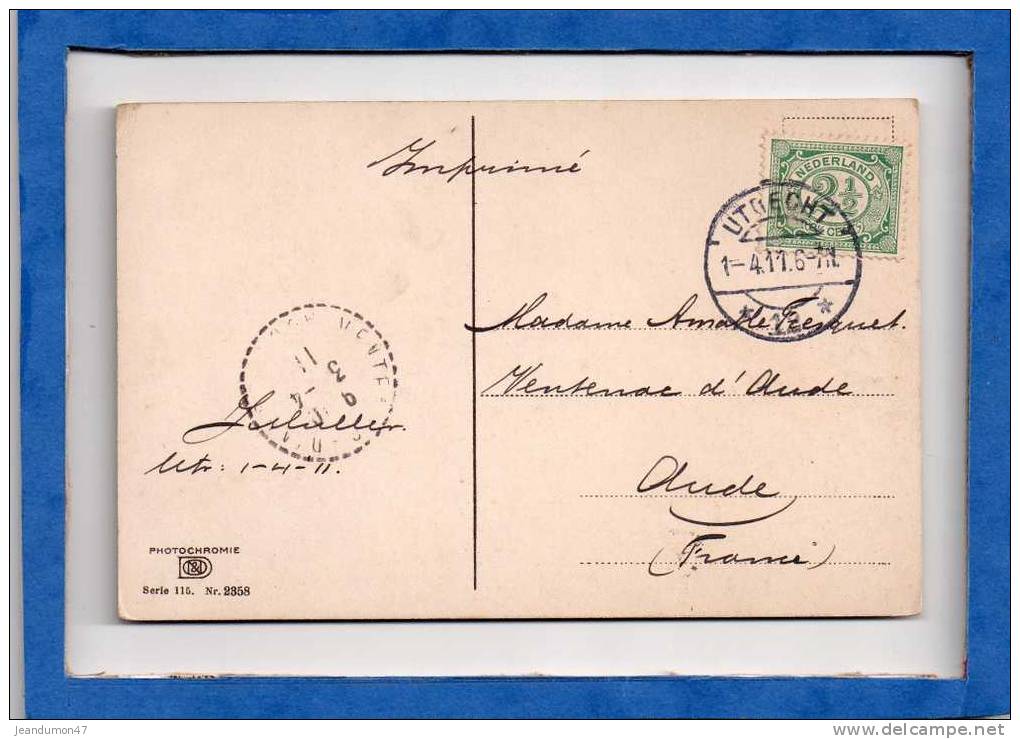 Imprimé
NEDERLAND
2½
UTRECHT
1-4.11.6-7N.
12
Madame Amable Fresquet.
Ventenac d'Aude
Aude
(France)
Utr: 1-4-11.
PHOTOCHROMIE
Serie 115. Nr. 2358
jeandumon47
www.delcampe.net